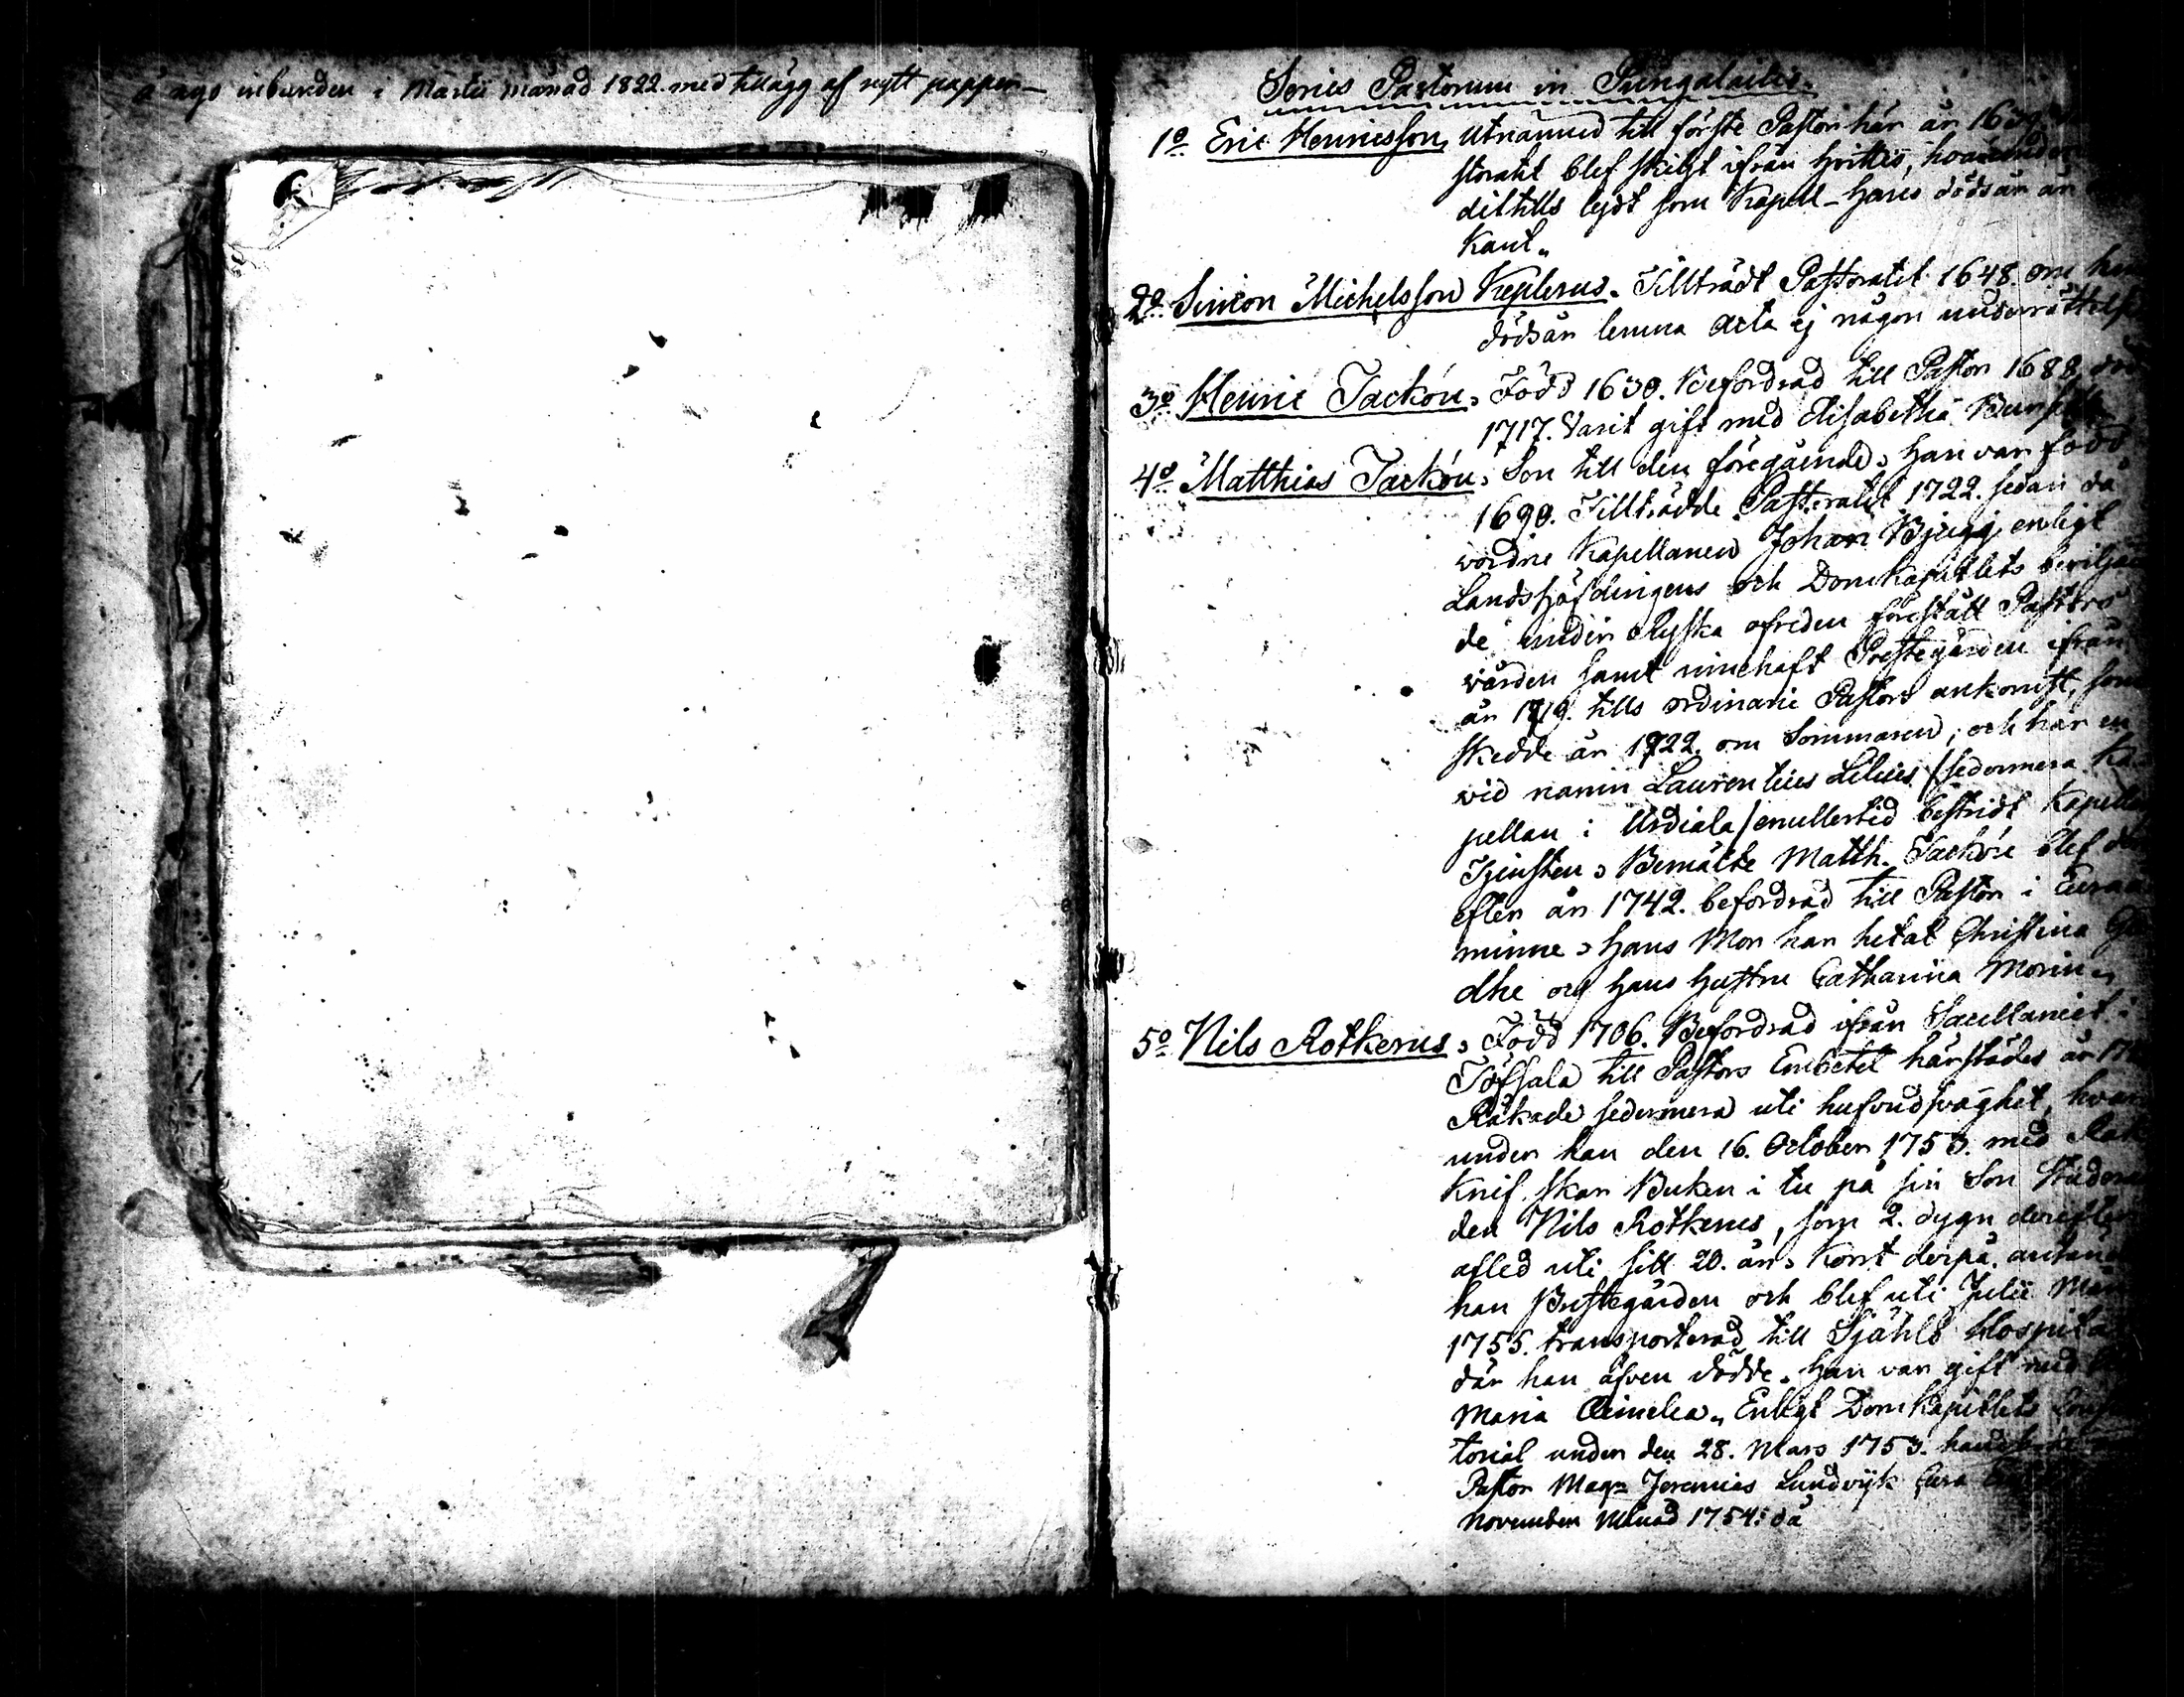 å nyo inbunden i Martii månad 1822. med tillägg af nytt papper
6.
Series Pastorum in Pungalaitis.
1o Eric Henricsson, Utnämnd till förste Pastor här år 1639
storatet blef skilgt ifrån Hvittis, hvarunder
dittills lydt som Kapell - Hans dödsår är
kant.
2o Simon Michelsson Keplerus. Tillträdt Pastoratet 1648. om hans
dödsår lemna Acta ej någon underrättelse
3o Henric Tackou. Född 1630. Befordrad till Pastor 1688, död
1717. Varit gift med Elisabetha
4o Matthias Tackou. Son till den föregående. Han var född
1690. Tillträdde Pastoratet 1722. sedan då
vordne Kapellanen Johan Bjugg, enligt
Landshöfdingens och Domkapitlets beviljan
de under Ryska ofreden förestått Pastors
vården samt innehaft Prestegården ifrån
år 1719. tills ordinarie Pastors ankomst, som
skedde år 1722. om Sommaren, och har en
vid namn Laurentius Lilius /sedermera Ka
pellan i Urdiala/ emellertid bestridt Kapellans
Tjensten. Bemälte Matth. Tackou blef
efter år 1742. befordrad till Pastor i Eura
minne. Hans Mor har hetat Christina
dhe och Hans Hustru Catharina Morin
5o Nils Rotkerus. Född 1706. Befordrad ifrån Sacellaniet i
Töfsala till Pastors Embetet härstädes år
Råkade sedermera uti hufvudsvaghet, hvar
under han den 16. October 1753. med Rak
Knif skar Buken i tu på sin Son Studeran
den Nils Rotkerus, som 2. dygn derefter
afled uti sitt 20. år. Kort derpå antände
han Prestegården och blef uti Julii Mån
1755. transporterad till Själö Hospital
där han äfven dödde. Han var gift med
Maria Aeimelea. Enligt Domkapitlets
torial under den 28. Mars 1753.
Pastor Mag. Jeremias Lundvijk Cura
November Månad 1754. då